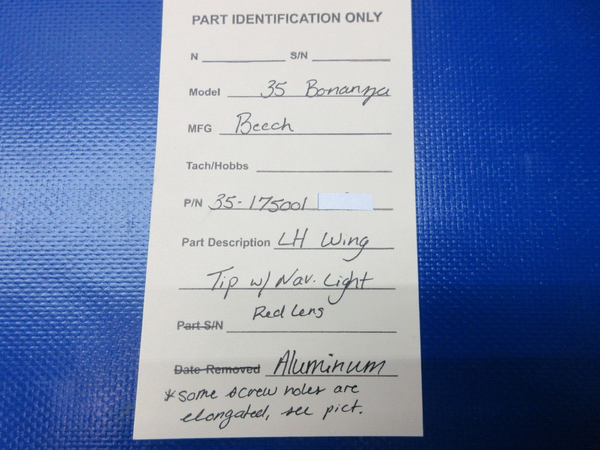 PART IDENTIFICATION ONLY
N S/N
Model 35 Bonanza
MFG Beech
Tach/Hobbs
P/N 35-175001
Part Description LH Wing
Tip w/ Nav. Light
Red Lens
Part S/N
Date Removed Aluminum
*some screw holes are
elongated, see pict.